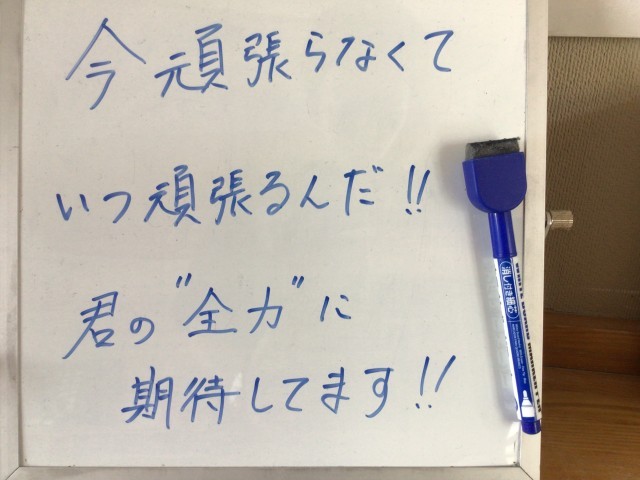 今頑張らなくて
いつ頑張るんだ!!
君の"全力"に
期待してます!!